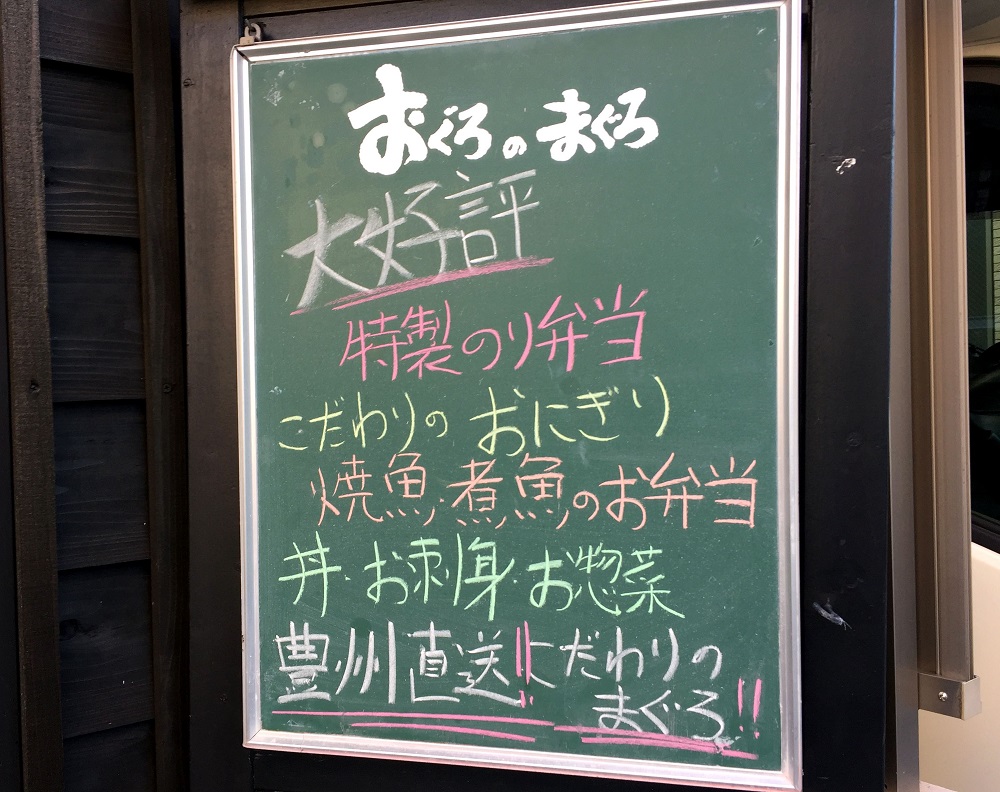 おぐろのまぐろ
大好評
特製のり弁当
こだわりの おにぎり
焼魚・煮魚のお弁当
丼・お刺身・お惣菜
豊州直送!!こだわりの
まぐろ!!